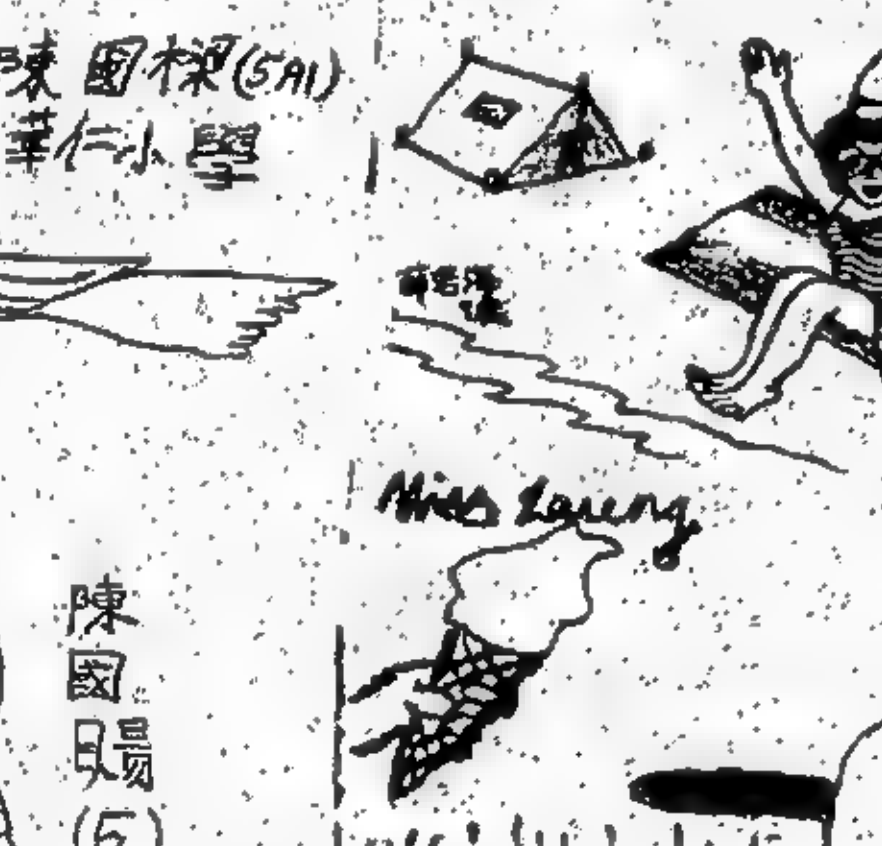 陳國樑(5A1)
華仁小學
Miss Leung
陳
國
賜
(5)